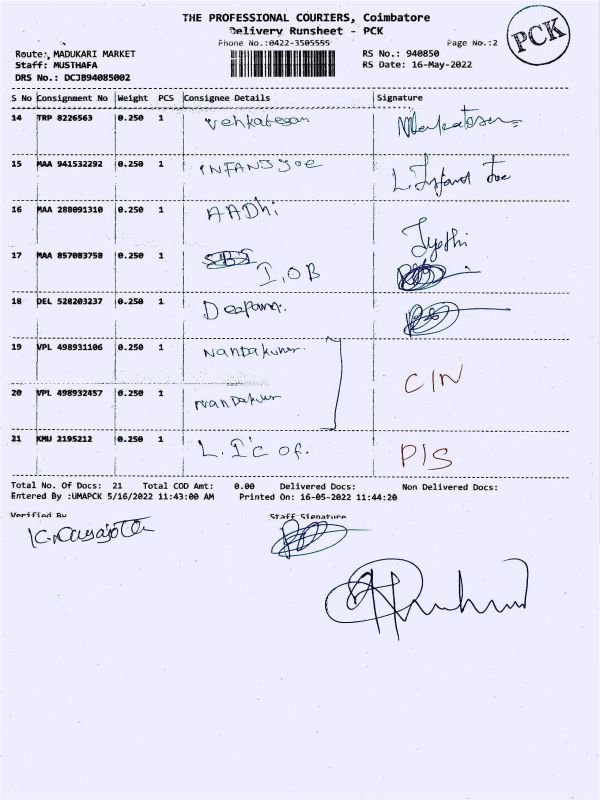 THE PROFESSIONAL COURIERS, Coimbatore
Delivery Runsheet - PCK
Phone No.:0422-3505555
Page No.:2
PCK
Route: MADUKARI MARKET
RS No.: 940850
Staff: MUSTHAFA
RS Date: 16-May-2022
DRS No.: DCJB94085002
S No Consignment No Weight PCS Consignee Details Signature
14 TRP 8226563 0.250 1 Venkatesan
15 MAA 941532292 0.250 1 INFANJ joe L. Infant Joe
16 MAA 288091310 0.250 1 AADhi Jyothi
17 MAA 857083758 0.250 1 I.OB
18 DEL 528203237 0.250 1
19 VPL 498931106 0.250 1 Nandakumar
C/N
20 VPL 498932457 0.250 1
21 KMU 2195212 0.250 1 L.I'c of. P/S
Total No. Of Docs: 21 Total COD Amt: 0.00 Delivered Docs: Non Delivered Docs:
Entered By :UMAPCK 5/16/2022 11:43:00 AM Printed On: 16-05-2022 11:44:20
Verified By Staff Signature